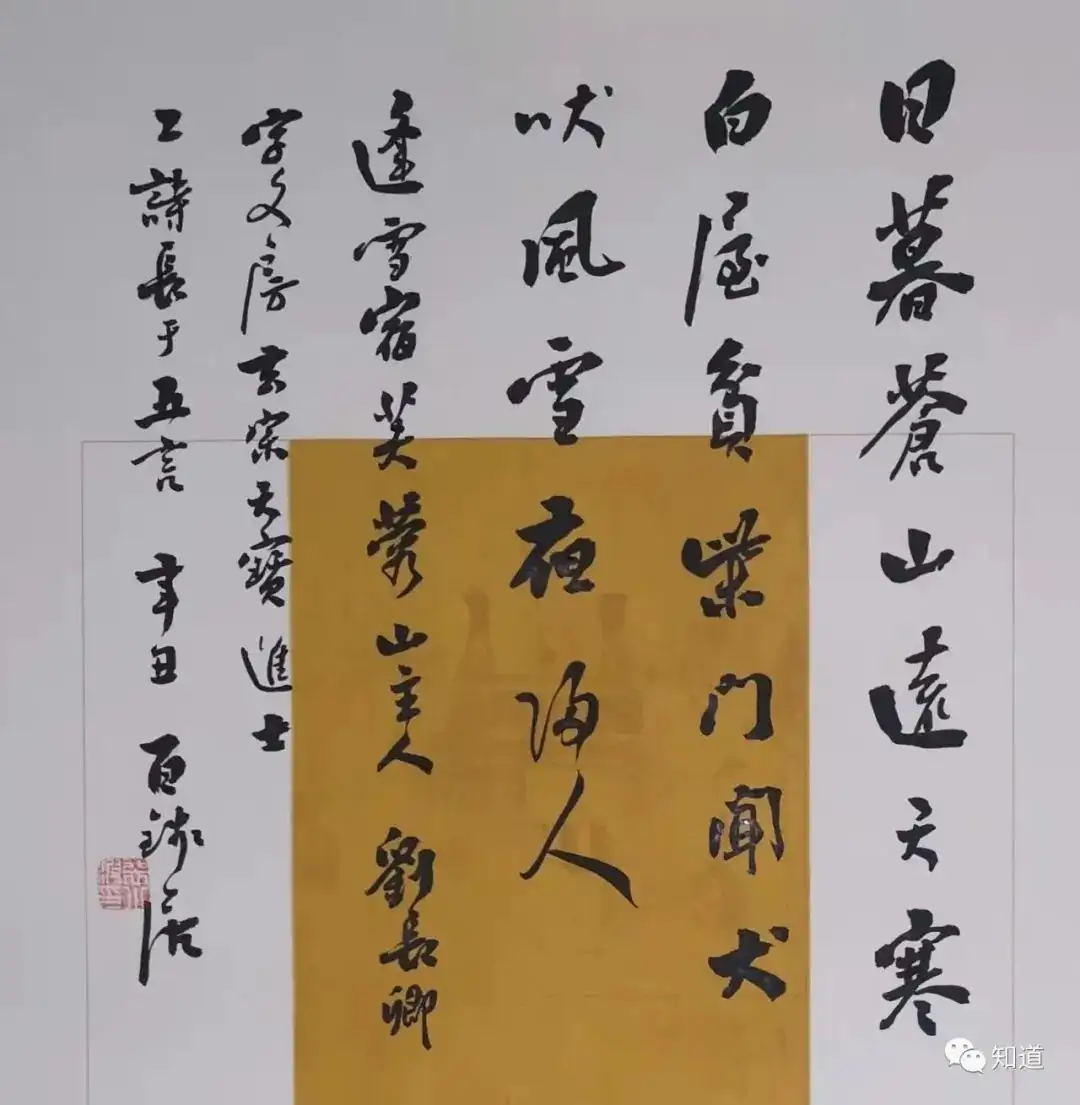 日暮蒼山遠天寒
白屋貧柴门聞犬
吠風雪夜歸人
逢雪宿芙蓉山主人 劉長卿
字文房玄宗天寶進士
工詩長于五言 辛丑 百
知道